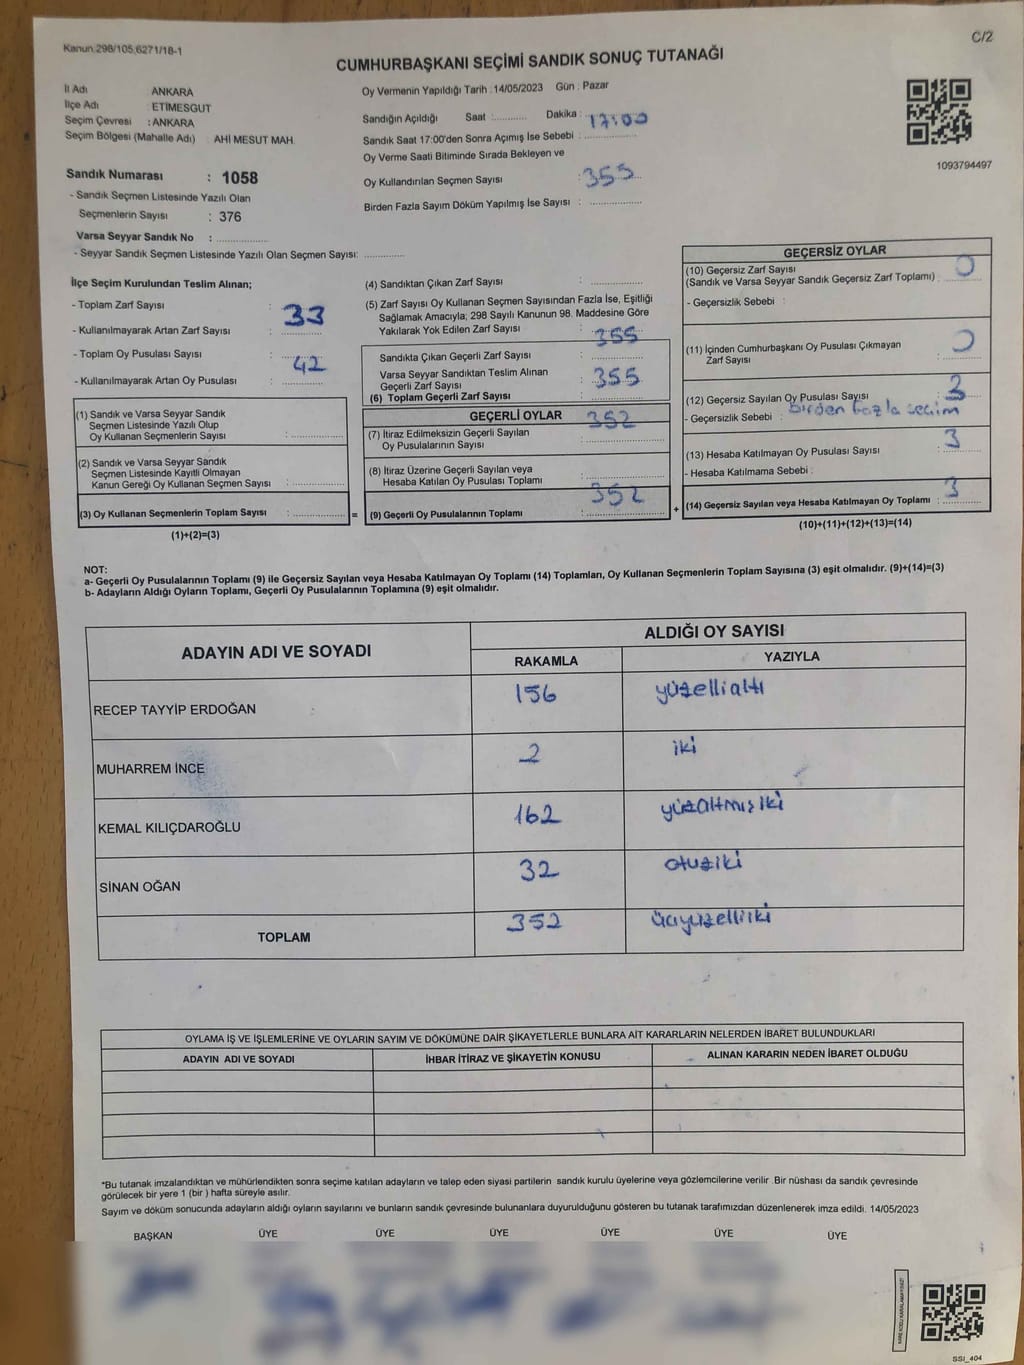 Kanun 298/105,6271/18-1
C/2
CUMHURBAŞKANI SEÇİMİ SANDIK SONUÇ TUTANAĞI
İl Adı : ANKARA
İlçe Adı : ETİMESGUT
Seçim Çevresi : ANKARA
Seçim Bölgesi (Mahalle Adı) : AHİ MESUT MAH.
Sandık Numarası : 1058
- Sandık Seçmen Listesinde Yazılı Olan
Seçmenlerin Sayısı : 376
Varsa Seyyar Sandık No : ................
- Seyyar Sandık Seçmen Listesinde Yazılı Olan Seçmen Sayısı: ............
Oy Vermenin Yapıldığı Tarih : 14/05/2023 Gün : Pazar
Sandığın Açıldığı Saat :........... Dakika : 17:00
Sandık Saat 17:00'den Sonra Açımış İse Sebebi : ................
Oy Verme Saati Bitiminde Sırada Bekleyen ve
Oy Kullandırılan Seçmen Sayısı : 355
Birden Fazla Sayım Döküm Yapılmış İse Sayısı : ................
1093794497
İlçe Seçim Kurulundan Teslim Alınan;
- Toplam Zarf Sayısı :
- Kullanılmayarak Artan Zarf Sayısı : 33
- Toplam Oy Pusulası Sayısı :
- Kullanılmayarak Artan Oy Pusulası : 42
(1) Sandık ve Varsa Seyyar Sandık
Seçmen Listesinde Yazılı Olup
Oy Kullanan Seçmenlerin Sayısı : ................
(2) Sandık ve Varsa Seyyar Sandık
Seçmen Listesinde Kayıtlı Olmayan
Kanun Gereği Oy Kullanan Seçmen Sayısı : ................
(3) Oy Kullanan Seçmenlerin Toplam Sayısı : ................ =
(1)+(2)=(3)
(4) Sandıktan Çıkan Zarf Sayısı : ................
(5) Zarf Sayısı Oy Kullanan Seçmen Sayısından Fazla İse, Eşitliği
Sağlamak Amacıyla; 298 Sayılı Kanunun 98. Maddesine Göre
Yakılarak Yok Edilen Zarf Sayısı :
Sandıkta Çıkan Geçerli Zarf Sayısı : 355
Varsa Seyyar Sandıktan Teslim Alınan
Geçerli Zarf Sayısı :
(6) Toplam Geçerli Zarf Sayısı : 355
GEÇERLİ OYLAR
(7) İtiraz Edilmeksizin Geçerli Sayılan
Oy Pusulalarının Sayısı : 352
(8) İtiraz Üzerine Geçerli Sayılan veya
Hesaba Katılan Oy Pusulası Toplamı : ................
(9) Geçerli Oy Pusulalarının Toplamı : 352 +
GEÇERSİZ OYLAR
(10) Geçersiz Zarf Sayısı
(Sandık ve Varsa Seyyar Sandık Geçersiz Zarf Toplamı) : 0
- Geçersizlik Sebebi :
(11) İçinden Cumhurbaşkanı Oy Pusulası Çıkmayan
Zarf Sayısı : 0
(12) Geçersiz Sayılan Oy Pusulası Sayısı : 3
- Geçersizlik Sebebi : birden fazla seçim
(13) Hesaba Katılmayan Oy Pusulası Sayısı : 3
- Hesaba Katılmama Sebebi :
(14) Geçersiz Sayılan veya Hesaba Katılmayan Oy Toplamı : 3
(10)+(11)+(12)+(13)=(14)
NOT:
a- Geçerli Oy Pusulalarının Toplamı (9) ile Geçersiz Sayılan veya Hesaba Katılmayan Oy Toplamı (14) Toplamları, Oy Kullanan Seçmenlerin Toplam Sayısına (3) eşit olmalıdır. (9)+(14)=(3)
b- Adayların Aldığı Oyların Toplamı, Geçerli Oy Pusulalarının Toplamına (9) eşit olmalıdır.
ADAYIN ADI VE SOYADI ALDIĞI OY SAYISI
RAKAMLA YAZIYLA
RECEP TAYYİP ERDOĞAN 156 yüzellialtı
MUHARREM İNCE 2 iki
KEMAL KILIÇDAROĞLU 162 yüzaltmışiki
SİNAN OĞAN 32 otuziki
TOPLAM 352 üçyüzelliiki
OYLAMA İŞ VE İŞLEMLERİNE VE OYLARIN SAYIM VE DÖKÜMÜNE DAİR ŞİKAYETLERLE BUNLARA AİT KARARLARIN NELERDEN İBARET BULUNDUKLARI
ADAYIN ADI VE SOYADI İHBAR İTİRAZ VE ŞİKAYETİN KONUSU ALINAN KARARIN NEDEN İBARET OLDUĞU
*Bu tutanak imzalandıktan ve mühürlendikten sonra seçime katılan adayların ve talep eden siyasi partilerin sandık kurulu üyelerine veya gözlemcilerine verilir .Bir nüshası da sandık çevresinde
görülecek bir yere 1 (bir ) hafta süreyle asılır.
Sayım ve döküm sonucunda adayların aldığı oyların sayılarını ve bunların sandık çevresinde bulunanlara duyurulduğunu gösteren bu tutanak tarafımızdan düzenlenerek imza edildi. 14/05/2023
BAŞKAN ÜYE ÜYE ÜYE ÜYE ÜYE ÜYE
KARE KODU KARALAMAYINIZ!
SSI_404